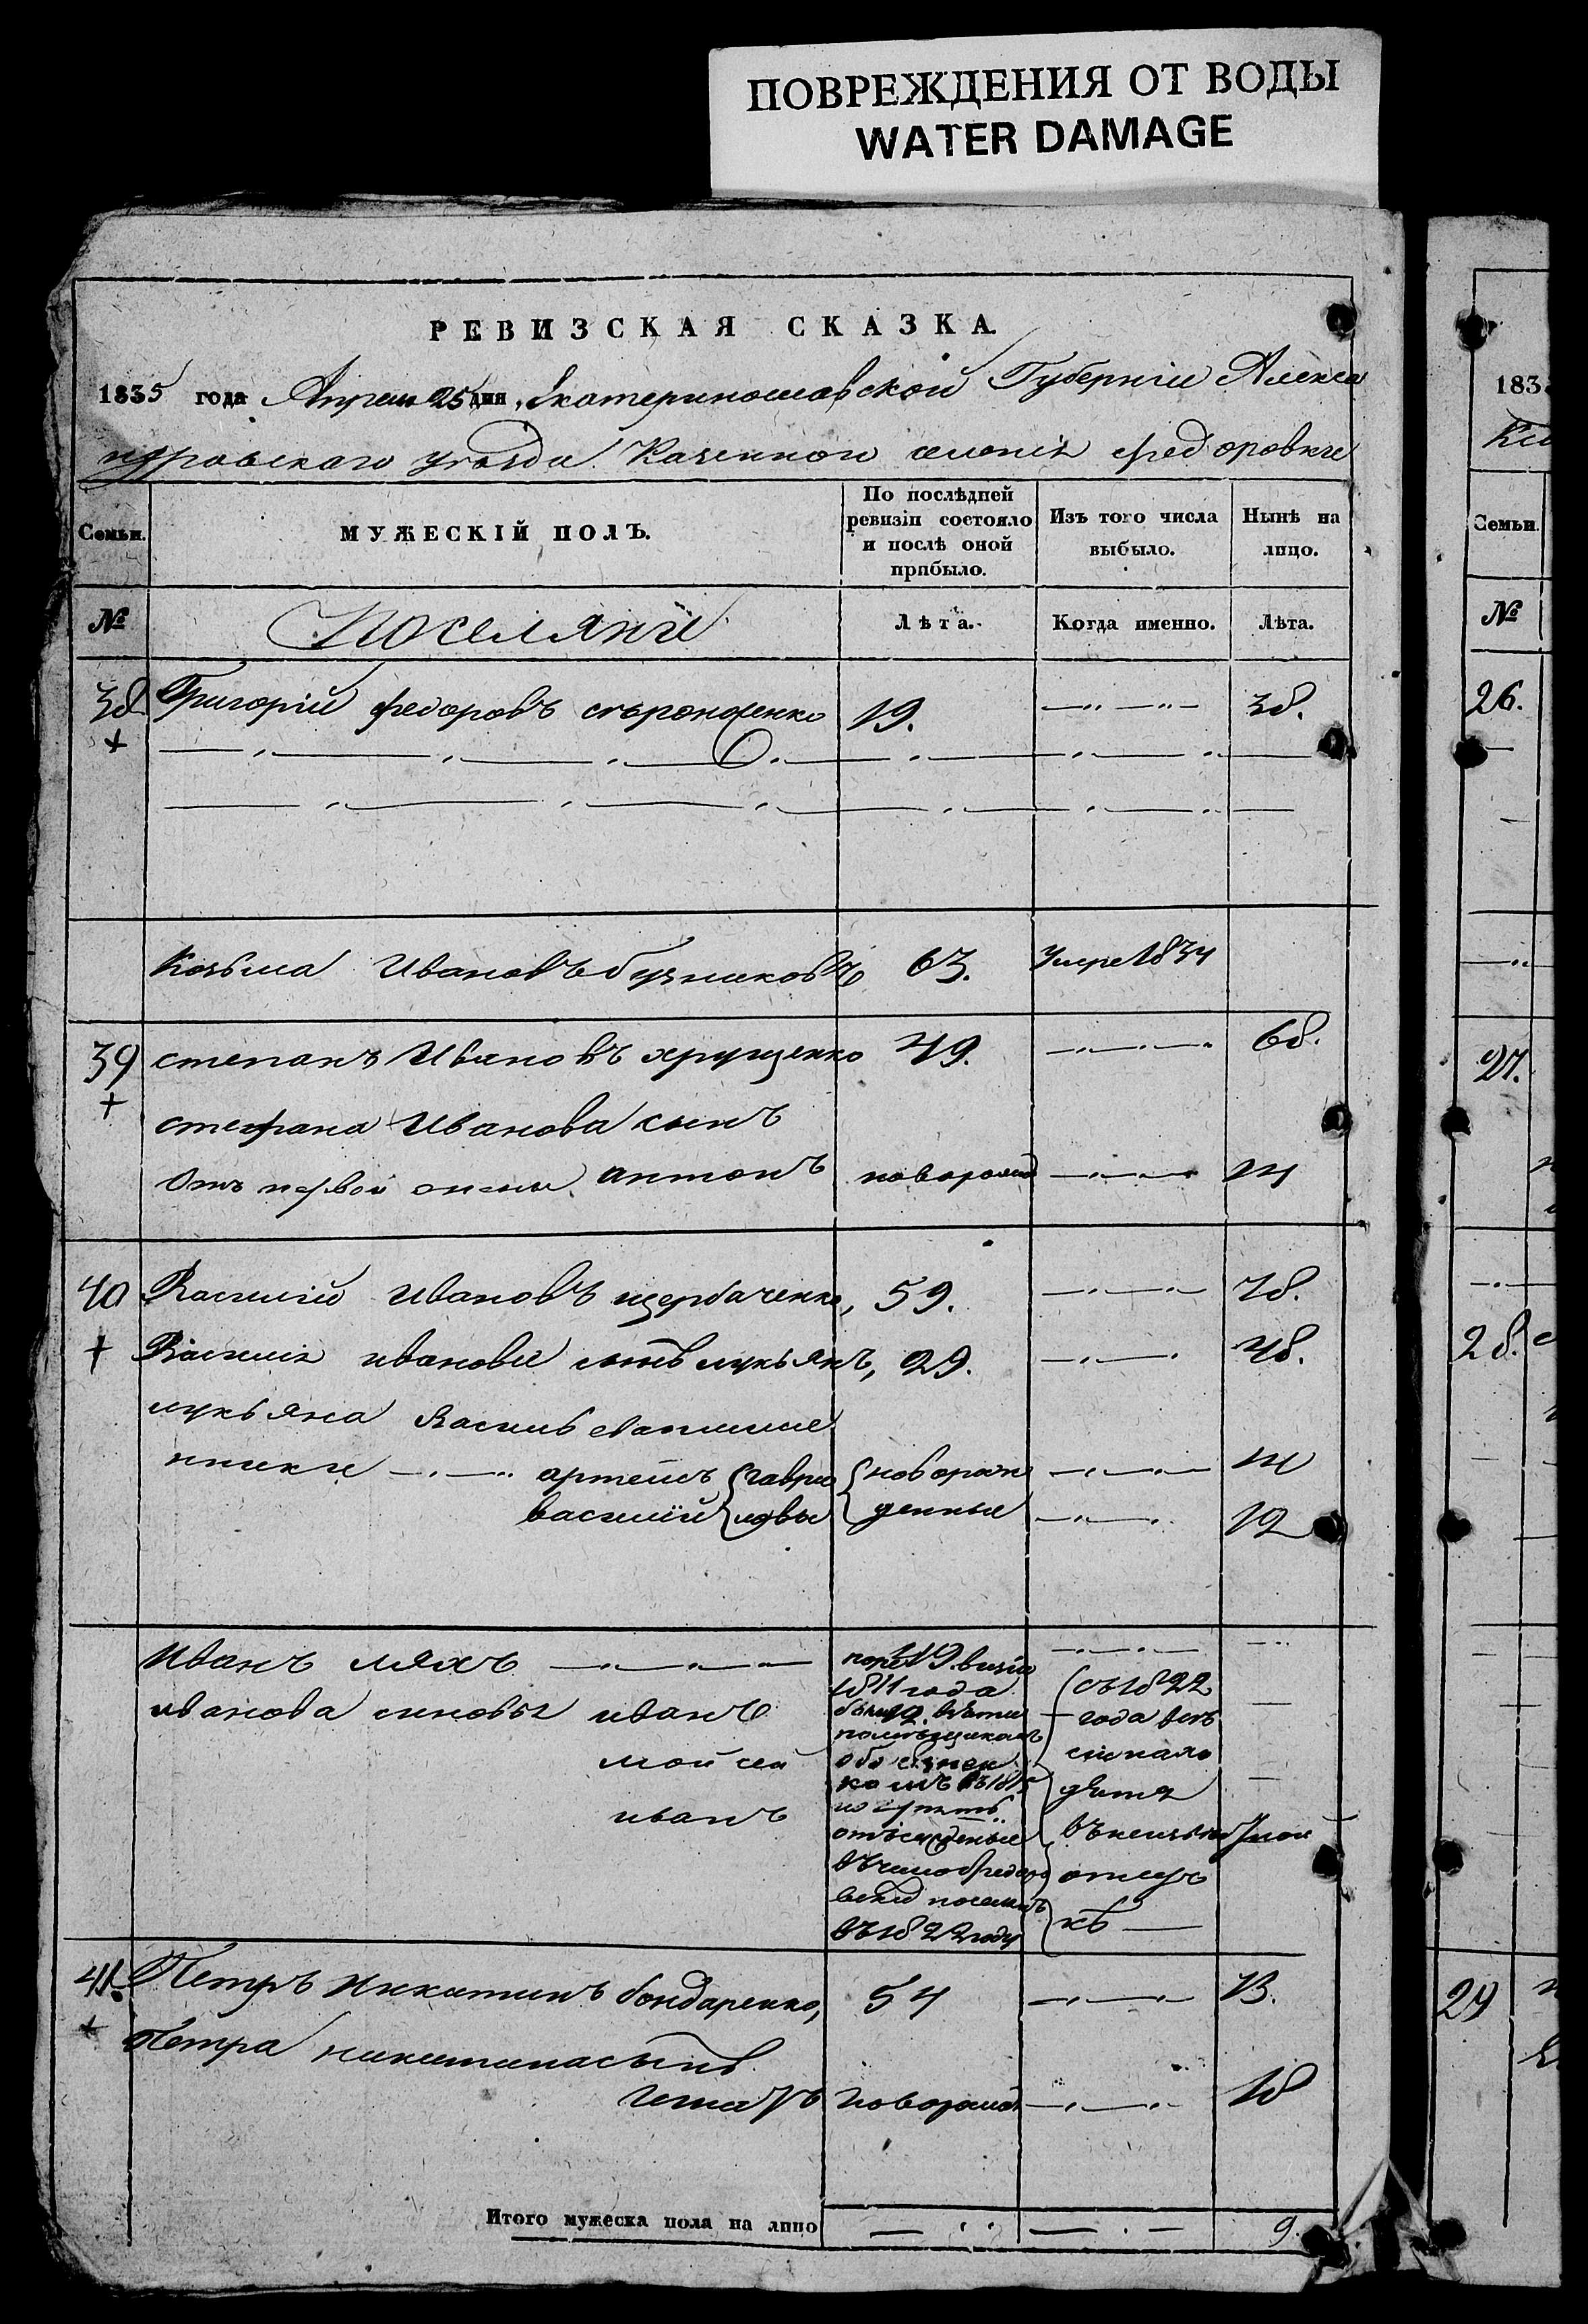 ПОВРЕЖДЕНИЯ ОТ ВОДЫ
WATER DAMAGE
РЕВИЗСКАЯ СКАЗКА.
1835 года Апреля 25 дня, Екатеринославской Губернии Алекса
ндровскаго уезда Казенного селения Федоровки
Семьи.
МУЖЕСКІЙ ПОЛЪ.
По послѣдней ревизіи состояло и послѣ оной прибыло.
Изъ того числа выбыло.
Нынѣ на лицо.
№
Поселяне
Лѣта.
Когда именно.
Лѣта.
38 Григорій федоровъ 19. 38.
Козьма Ивановъ 63. Умре 1834
39 степанъ Ивановъ хрущенко 49. 68.
стефана Иванова сынъ
Отъ первой жены антонъ новорожд 14
40 Василий Ивановъ щербаченко, 59. 78.
Василия иванова сынъ лукьянъ, 29. 48.
лукьяна Василь
артемъ гаври новорож 14
василий ловы денные 12
Иванъ ляхъ
иванова сыновья иванъ
1811 года
съ 1822
года
мойсей
иванъ
въ 1822 году
41. Петръ Никитинъ бондаренко, 54 73.
Петра никитина сынъ
новорожд 18
Итого мужеска пола на лицо 9.
183
Семьи.
№
26.
27.
28.
29